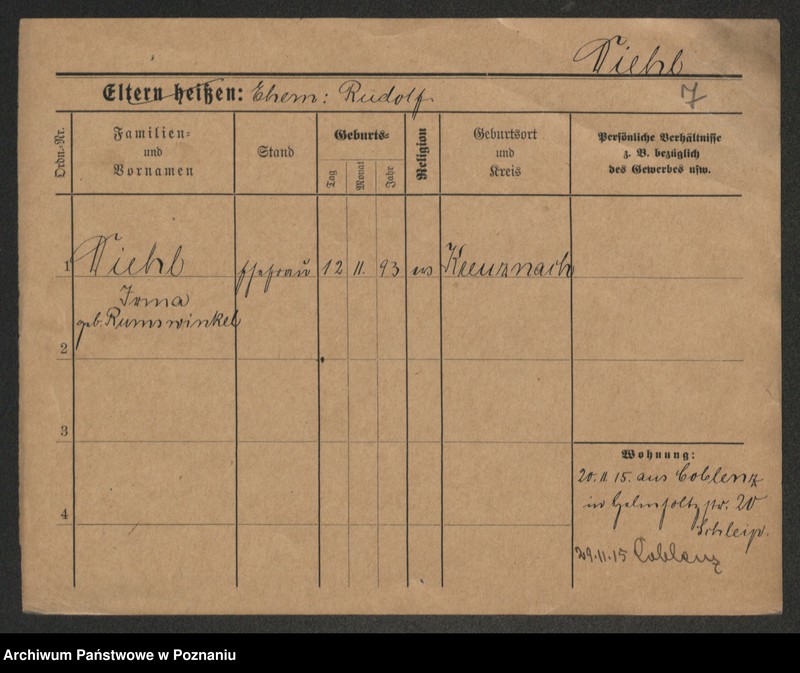 Diehl
7
Eltern heißen: Ehem: Rudolf
Ordn.-Nr.
Familien-
und
Vornamen
Stand
Geburts-
Tag
Monat
Jahr
Religion
Geburtsort
und
Kreis
Persönliche Verhältnisse
z. B. bezüglich
des Gewerbes usw.
1 Diehl Ehefrau 12 11. 93 ev Kreuznach
Irma
geb. Rumswinkel
2
3
Wohnung:
20.11.15. aus Coblenz
in Helmholtzstr. 20
4
Schleip.
29.11.15 Coblenz
Archiwum Państwowe w Poznaniu